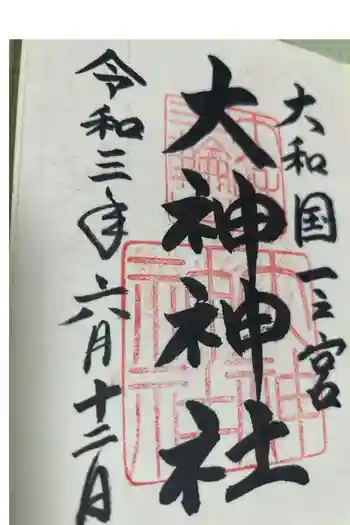 大和国一之宮
大神神社
令和三年六月十二日